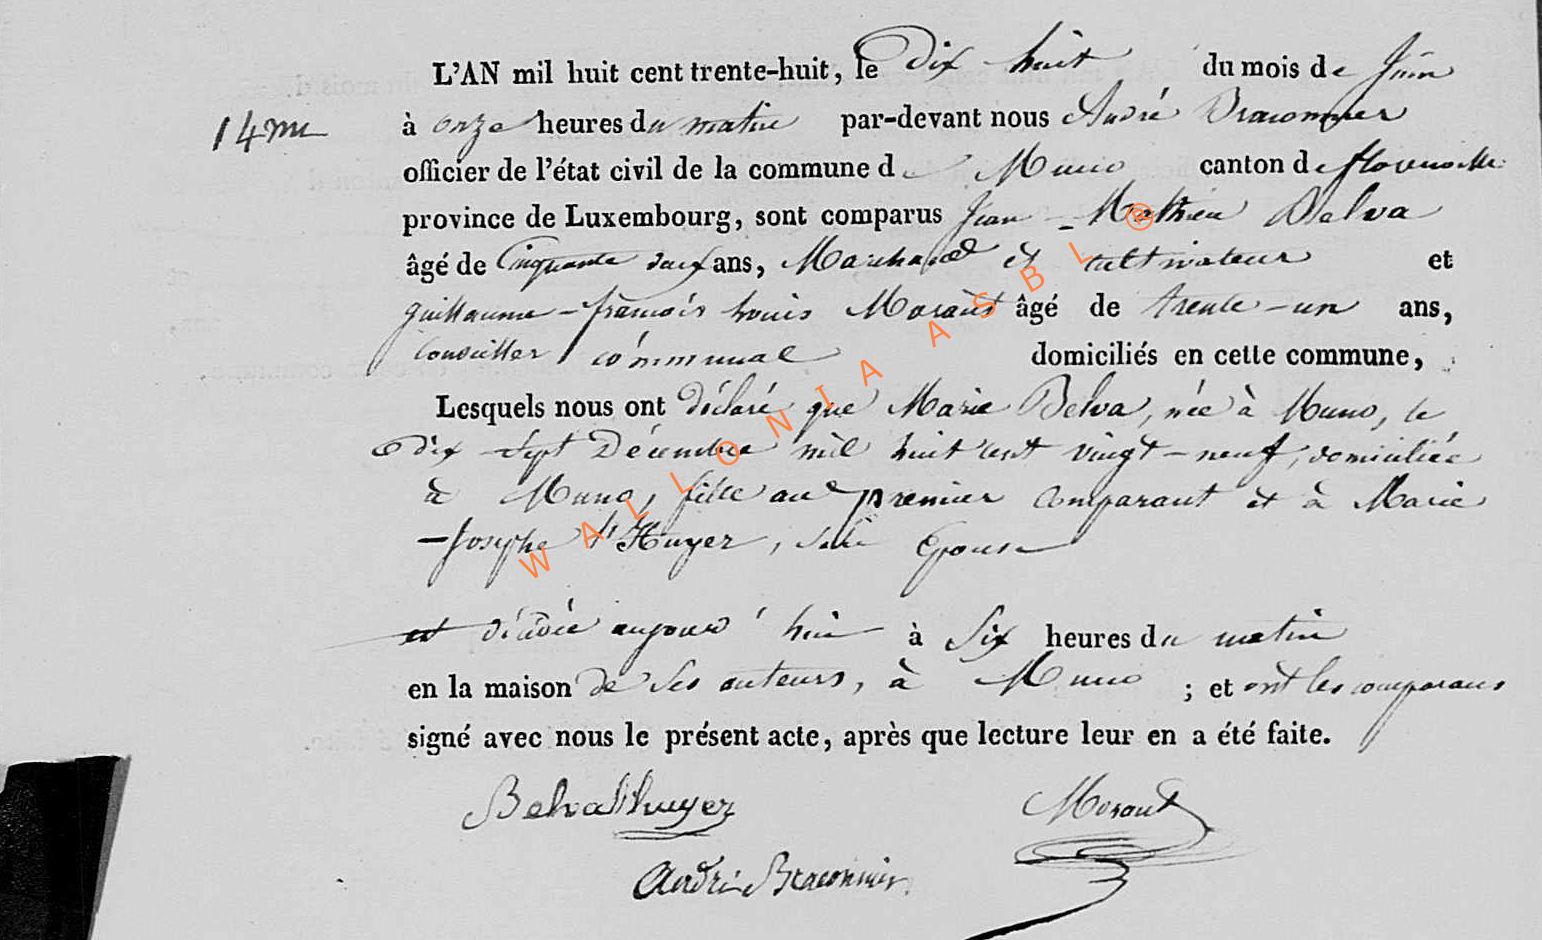 L'AN mil huit cent trente-huit, le Dix huit du mois de Juin
14me
à onze heures du matin par-devant nous André Braconnier
officier de l'état civil de la commune de Muno canton de florenville
province de Luxembourg, sont comparus Jean-Mathieu Belva
âgé de Cinquante ans, Marchand et cultivateur et
guillaume-françois Louis Morant âgé de trente-un ans,
Conseiller communal domiciliés en cette commune,
Lesquels nous ont déclaré que Marie Belva, née à Muno, le
Dix-sept Décembre mil huit cent vingt-neuf, domiciliée
à Muno, fille au premier comparant et à Marie
-Josephe l'Huyer, Epouse
est décédée aujourd'hui à Six heures du matin
en la maison de Ses auteurs, à Muno ; et ont les comparans
signé avec nous le présent acte, après que lecture leur en a été faite.
Belvalhuyer Morant
André Braconnier
WALLONIA ASBL ®